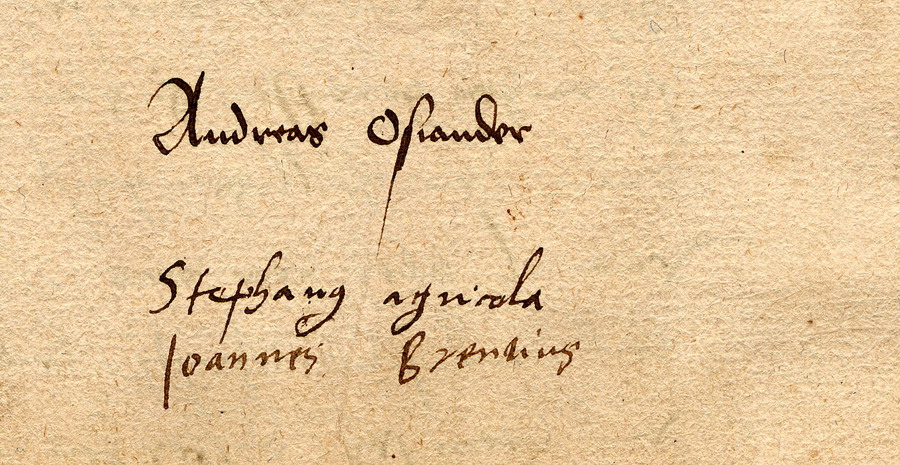 Andreas Osiander
Stephanus agricola
Ioannes Brentius